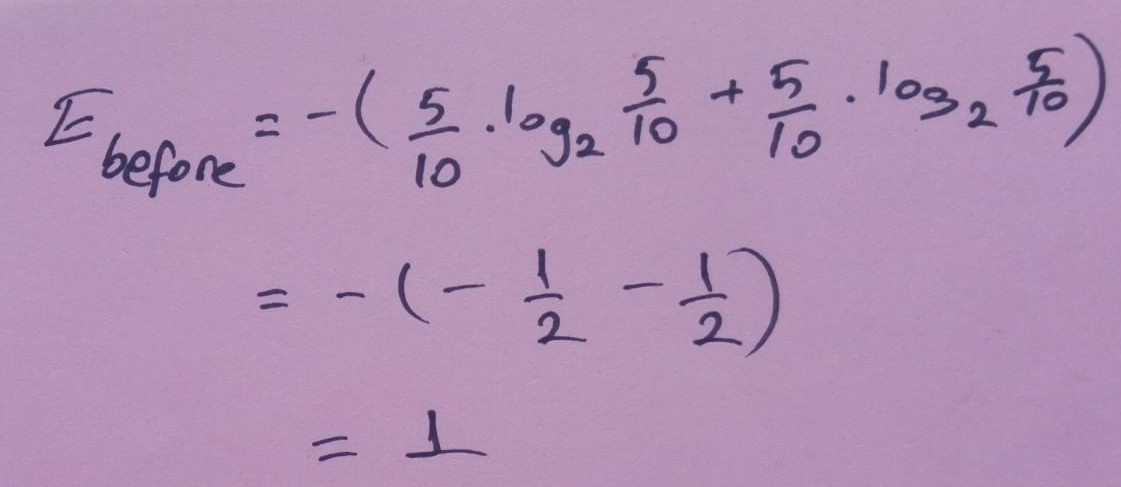 E_before = -( 5/10 . log₂ 5/10 + 5/10 . log₂ 5/10 )
= - ( - 1/2 - 1/2 )
= 1